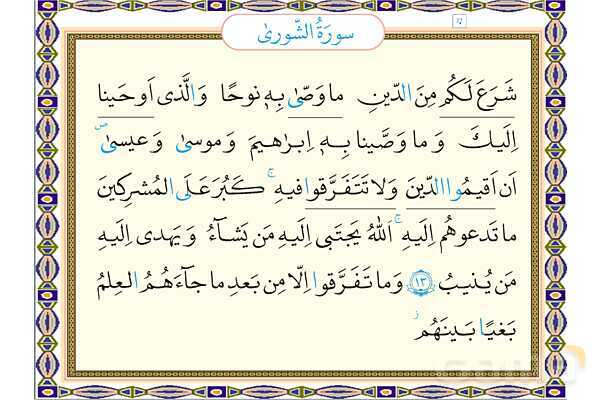 سورَةُ الشّورىٰ
شَرَعَ لَكُم مِنَ الدّينِ ما وَصّىٰ بِهِ نوحًا وَالَّذى اَوحَينا
اِلَيكَ وَ ما وَصَّينا بِهِ اِبرٰهيمَ وَ موسىٰ وَ عيسىٰ ص
اَن اَقيمُوا الدّينَ وَلا تَتَفَرَّقوا فيهِ ۚ كَبُرَ عَلَى المُشرِكينَ
ما تَدعوهُم اِلَيهِ ۚ اَللّٰهُ يَجتَبى اِلَيهِ مَن يَشاۤءُ وَ يَهدى اِلَيهِ
مَن يُنيبُ ﴿١٣﴾ وَ ما تَفَرَّقوا اِلّا مِن بَعدِ ما جاۤءَهُمُ العِلمُ
بَغيًا بَينَهُم ز